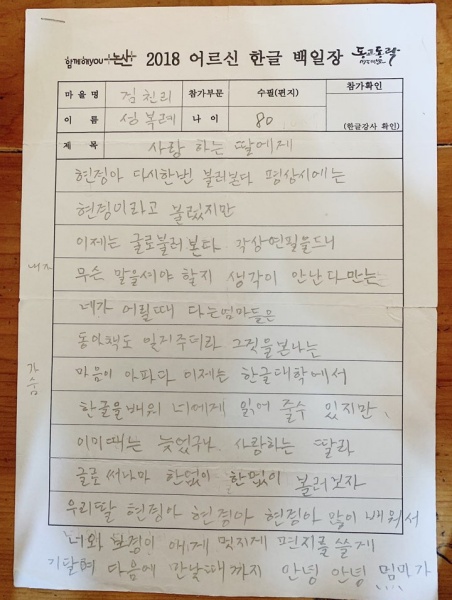 함께해you 논산 2018 어르신 한글 백일장 동고동락
마을명 김천리 참가부문 수필(편지) 참가확인
이 름 성복례 나 이 80 (한글강사 확인)
제 목 사랑 하는 딸에게
현정아 다시한번 불러본다 평상시에는
현정이라고 불렀지만
이제는 글로불러 본다. 각상연필을드니
무슨 말을써야 할지 생각이 안난다만는
네가 어릴때 다는엄마들은
동앗책도 일지주더라 그것을본나는
마음이 아파다 이제는 한글대학에서
한글을배워 너에게 읽어 줄수 있지만,
이미때는 늦었구나. 사랑하는 딸라
글로 써나마 한없이 한없이 불러보자
우리딸 현정아 현정아 현정아 많이 배워서
너와 애게 멋지게 편지를 쓸게
기달혀 다음에 만날때 까지 안녕 안녕 엄마가
내가
가슴